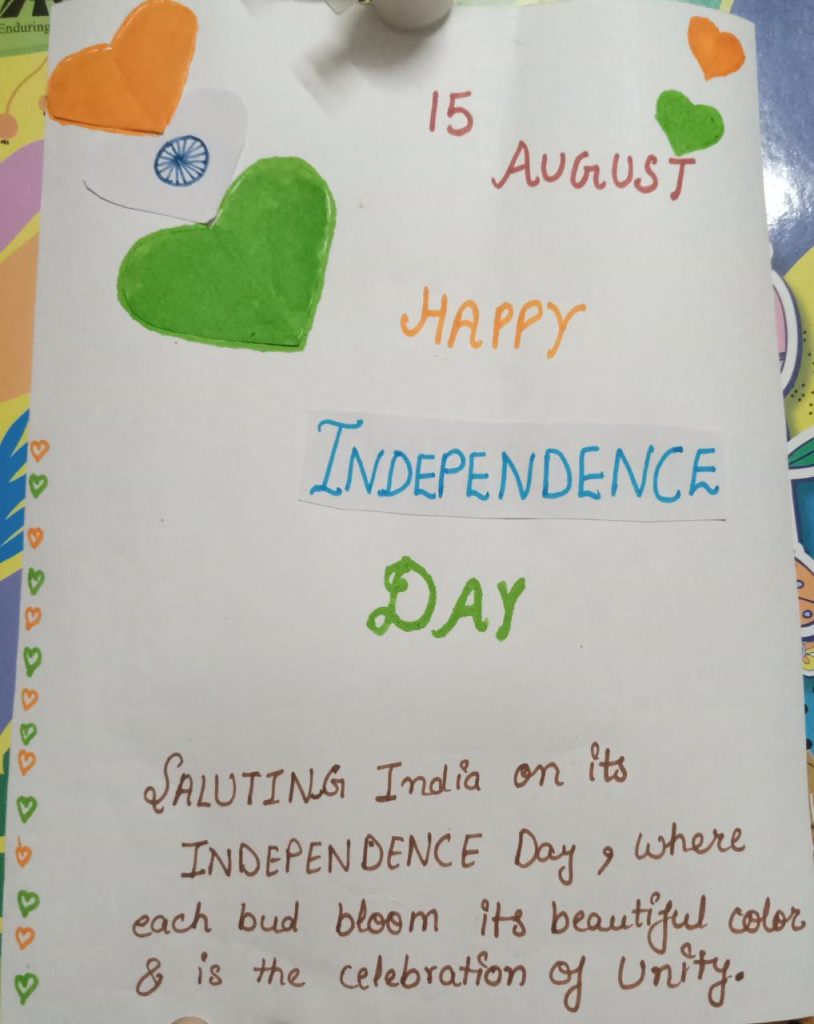 Enduring
15
AUGUST
HAPPY
INDEPENDENCE
DAY
SALUTING India on its
INDEPENDENCE Day, where
each bud bloom its beautiful color
& is the celebration of Unity.